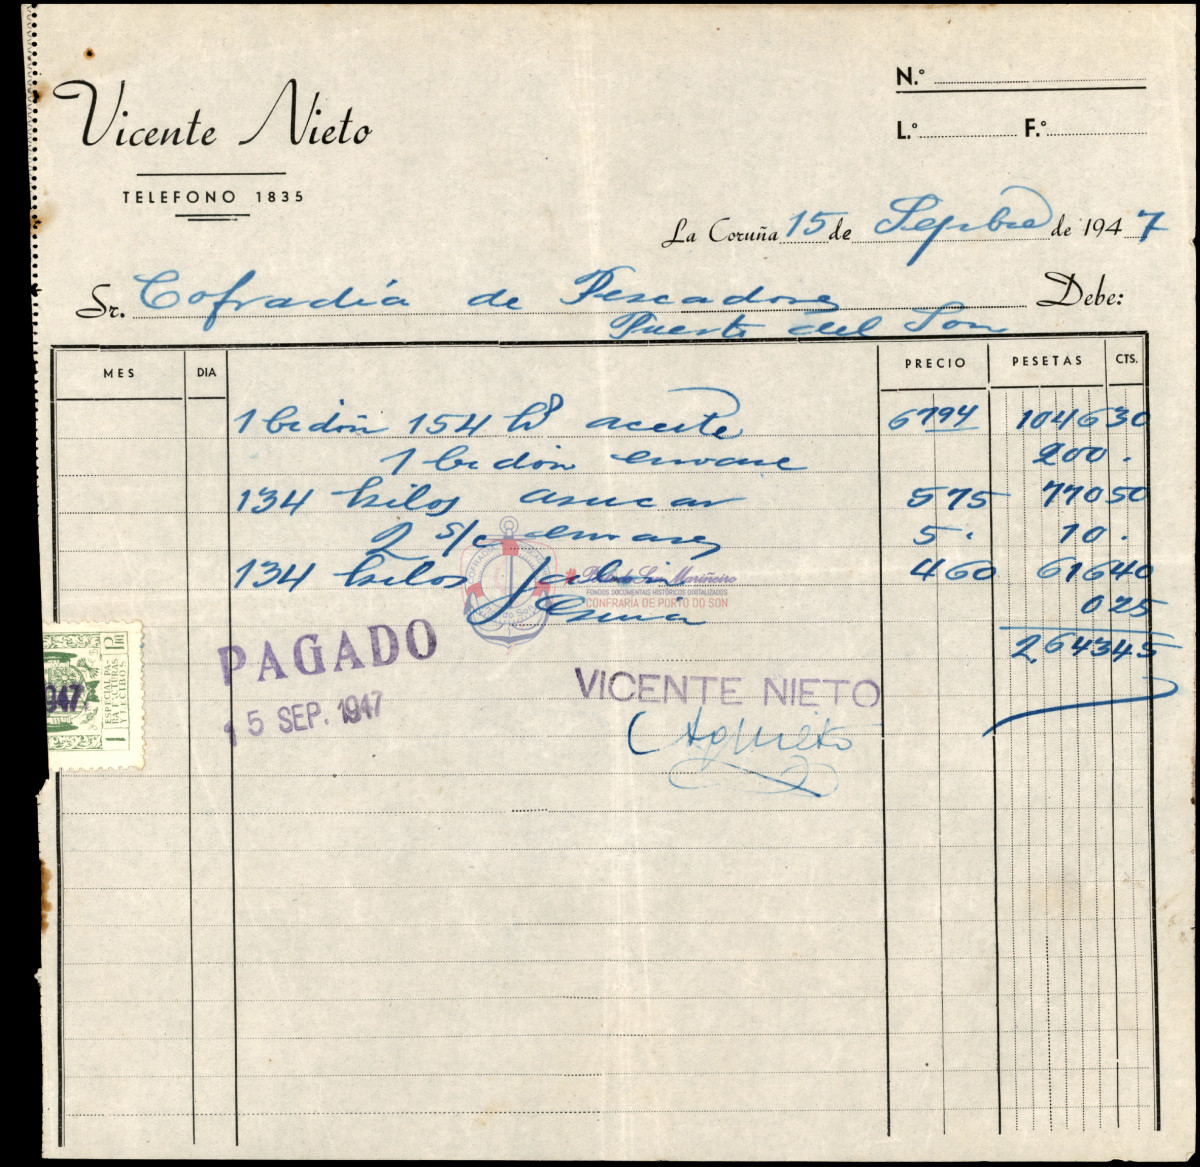 Vicente Nieto
TELEFONO 1835
N.º
L.º F.º
La Coruña 15 de Sepbre de 1947
Sr. Cofradia de Pescadores Debe:
Puerto del Son
MES DIA PRECIO PESETAS CTS.
1 bidón 154 k⁸ aceite 6794 1046 30
1 bidón envase 200 .
134 kilos azucar 575 770 50
2 s/c envases 5 . 10 .
134 kilos jabón 460 616 40
0 25
2643 45
Mariñeiro
FONDOS DOCUMENTAIS HISTÓRICOS DIXITALIZADOS
CONFRARÍA DE PORTO DO SON
PAGADO
15 SEP. 1947
VICENTE NIETO
947
ESPECIAL PA-
RA FACTURAS
Y RECIBOS
1